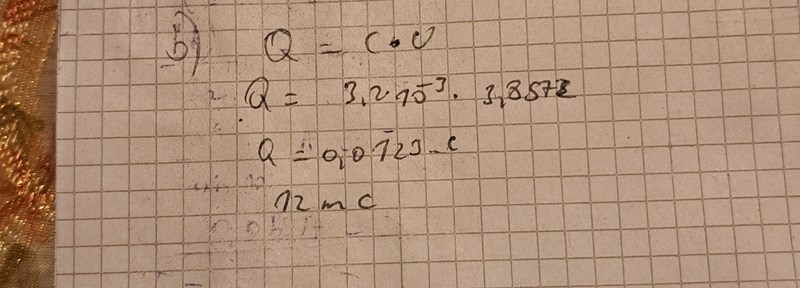 b) Q = C • U
Q = 3,2 · 10⁻³ · 3,8572
Q = 0,0123 C
12 m C